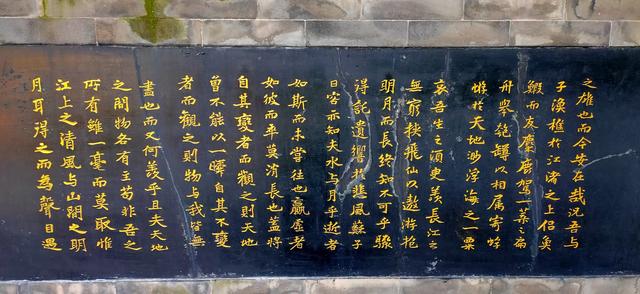 之雄也而今安在哉況吾與
子漁樵於江渚之上侶魚
鰕而友麋鹿駕一葉之扁
舟舉匏罇以相屬寄蜉
蝣於天地渺浮海之一粟
哀吾生之須臾羨長江之
無窮挾飛仙以遨遊抱
明月而長終知不可乎驟
得託遺響於悲風蘇子
曰客亦知夫水與月乎逝者
如斯而未嘗往也贏虛者
如彼而卒莫消長也蓋將
自其變者而觀之則天地
曾不能以一瞬自其不變
者而觀之則物與我皆無
盡也而又何羨乎且夫天地
之間物各有主苟非吾之
所有雖一毫而莫取惟
江上之清風與山間之明
月耳得之而為聲目遇